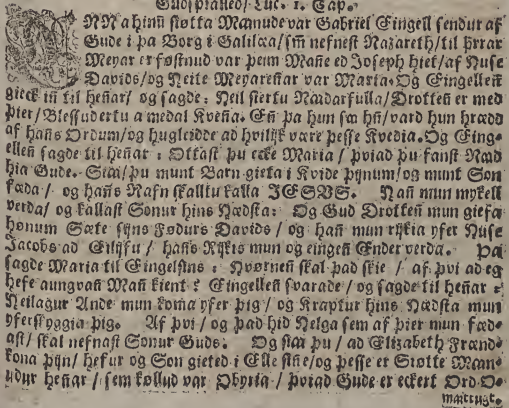 Gudspialled/ Luc. 1. Cap.
NN a hinū siøtta Mæmude var Gabriel Eingell sendur af
Gude i þa Borg i Galilæa/ sm nefnest Nazareth/ til þrrar
Meyar er føstnud var þeim Mañe ed Joseph hiet/ af Huse
Davids/ og Heite Meyareñar var Maria. Og Eingelleñ
gieck iñ til heñar/ og sagde: Heil siertu Naadarfulla/ Drotteñ er med
þier/ Blessudertu a medal Kveña. Eñ þa hun sæ hñ/ vard hun hrædd
af hañs Ordum/ og hugleidde ad hvilijk være þesse Kvedia. Og Einge-
elleñ sagde til heñar: Ottast þu ecke Maria/ þviad þu fanst Naad
hia Gude. Siaa/ þu munt Barn gieta i Kvide þijnum/ og munt Son
fæda/ og hañs Nafn skalltu kalla JESVS. Hañ mun mykell
verda/ og kallast Sonur hins Hædsta: Og Gud Drotteñ mun giefa
hønum Sæte sijns Fødurs Davids/ og hañ mun rijkia yfer Huse
Jacobs ad Eilijfu/ hañs Rijkis mun og eingeñ Ender verda. Þa
sagde Maria til Eingelsins: Hvørneñ skal þad skie/ af þvi ad eg
hefe aungvañ Mañ kient? Eingelleñ svarade/ og sagde til heñar:
Heilagur Ande mun koma yfer þig/ og Kraptur hins Hædsta mun
yferskyggia þig. Af þvi/ og þad hid Helga sem af þier mun fæd-
ast/ skal nefnast Sonur Guds. Og siaa þu/ ad Elizabeth Frænd-
kona þijn/ hefur og Son gieted i Elle siñe/ og þesse er Siøtte Maan-
udur heñar/ sem kollud var Obyria/ þviad Gude er eckert Ord O-
maattugt.